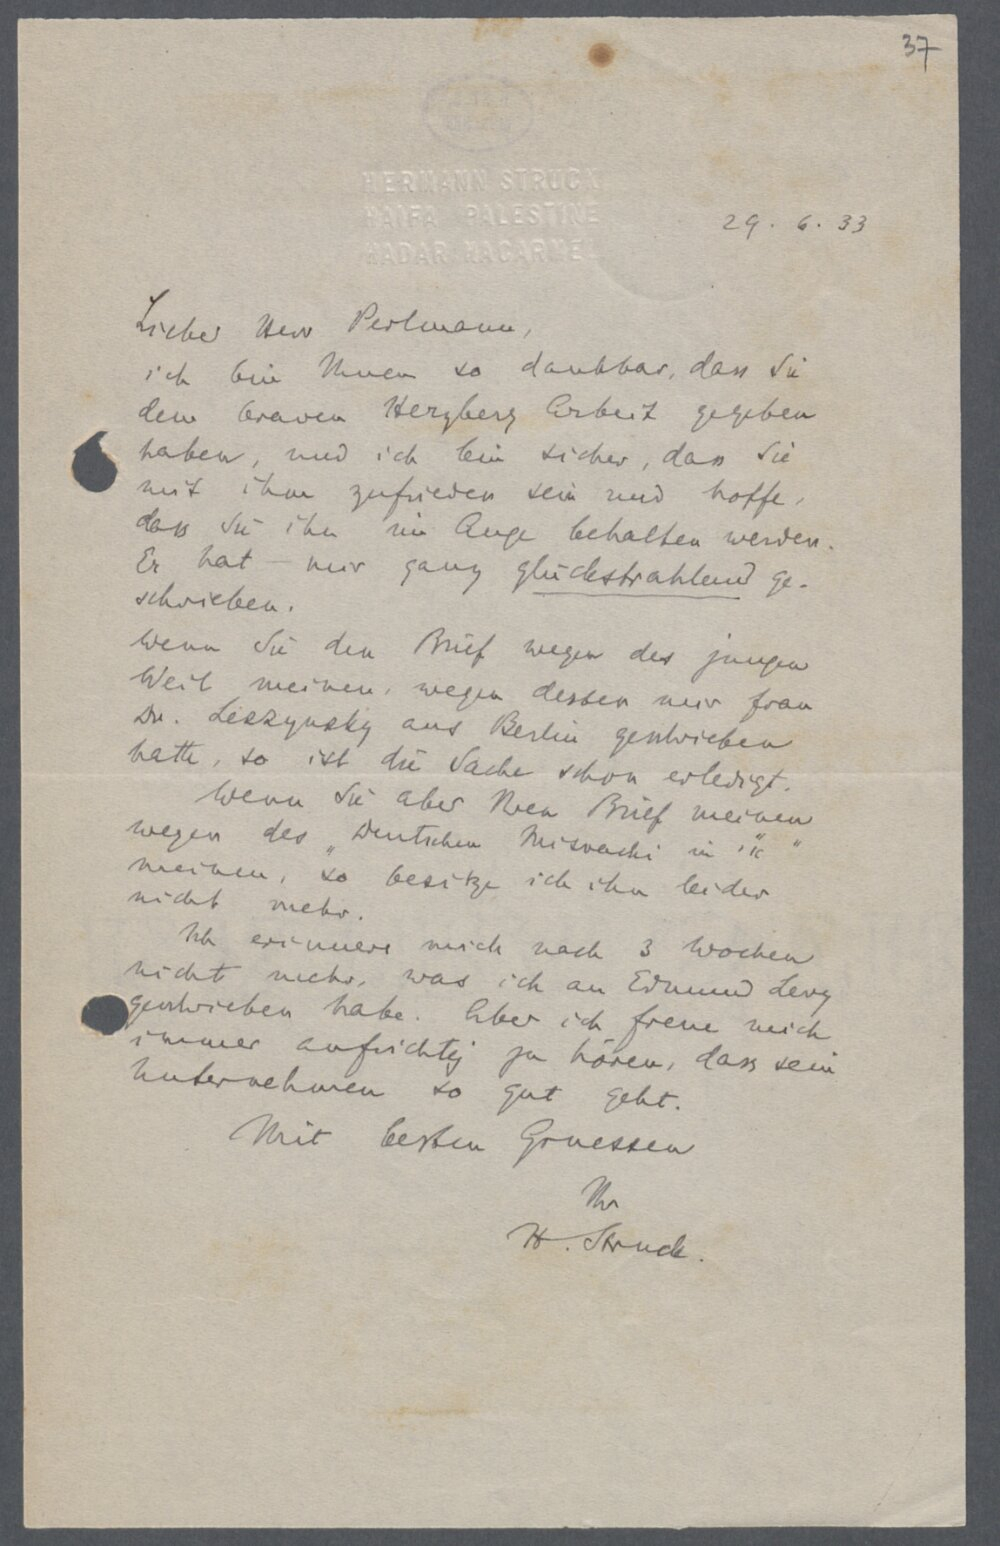 37
HERMANN STRUCK
HAIFA PALESTINE
HADAR HACARMEL
29. 6. 33
Lieber Herr Perlmann,
ich bin Ihnen so dankbar, dass Sie
dem braven Herzberg Arbeit gegeben
haben, und ich bin sicher, dass Sie
mit ihm zufrieden sein und hoffe,
dass Sie ihn im Auge behalten werden.
Er hat mir ganz glückstrahlend ge-
schrieben.
Wenn Sie den Brief wegen des jungen
Weil meinen, wegen dessen mir Frau
Dr. Leszynsky aus Berlin geschrieben
hatte, so ist die Sache schon erledigt.
Wenn Sie aber Ihren Brief meinen
wegen des „Deutschen Misrachi in
meinen, so besitze ich ihn leider
nicht mehr.
Ich erinnere mich nach 3 Wochen
nicht mehr, was ich an Edmund Levy
geschrieben habe. Aber ich freue mich
immer aufrichtig zu hören, dass sein
Unternehmen so gut geht.
Mit besten Gruessen
Ihr
H. Struck.